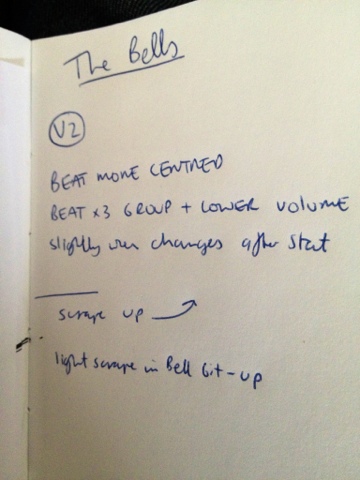 The Bells
V2
BEAT MORE CENTRED
BEAT x3 GROUP + LOWER VOLUME
slightly changes after start
scrape up
light scrape in Bell bit - up